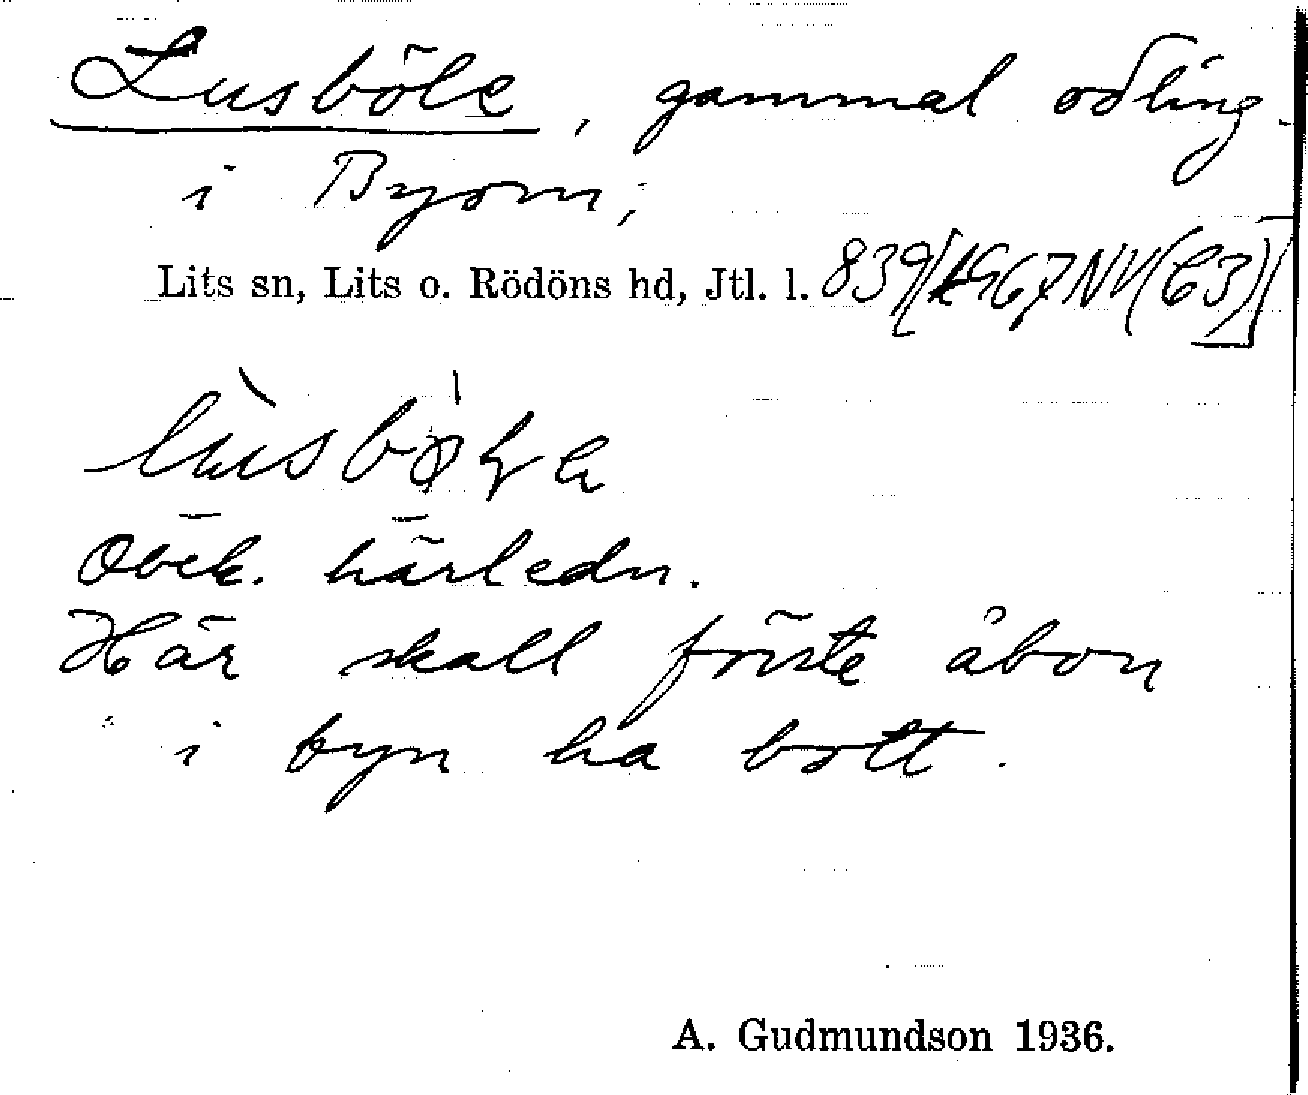 Lusböle, gammal odling
i Byom;
Lits sn, Lits o. Rödöns hd, Jtl. l. 839
Obek. härledn.
Här skall förste åbon
i byn ha bott.
A. Gudmundson 1936.